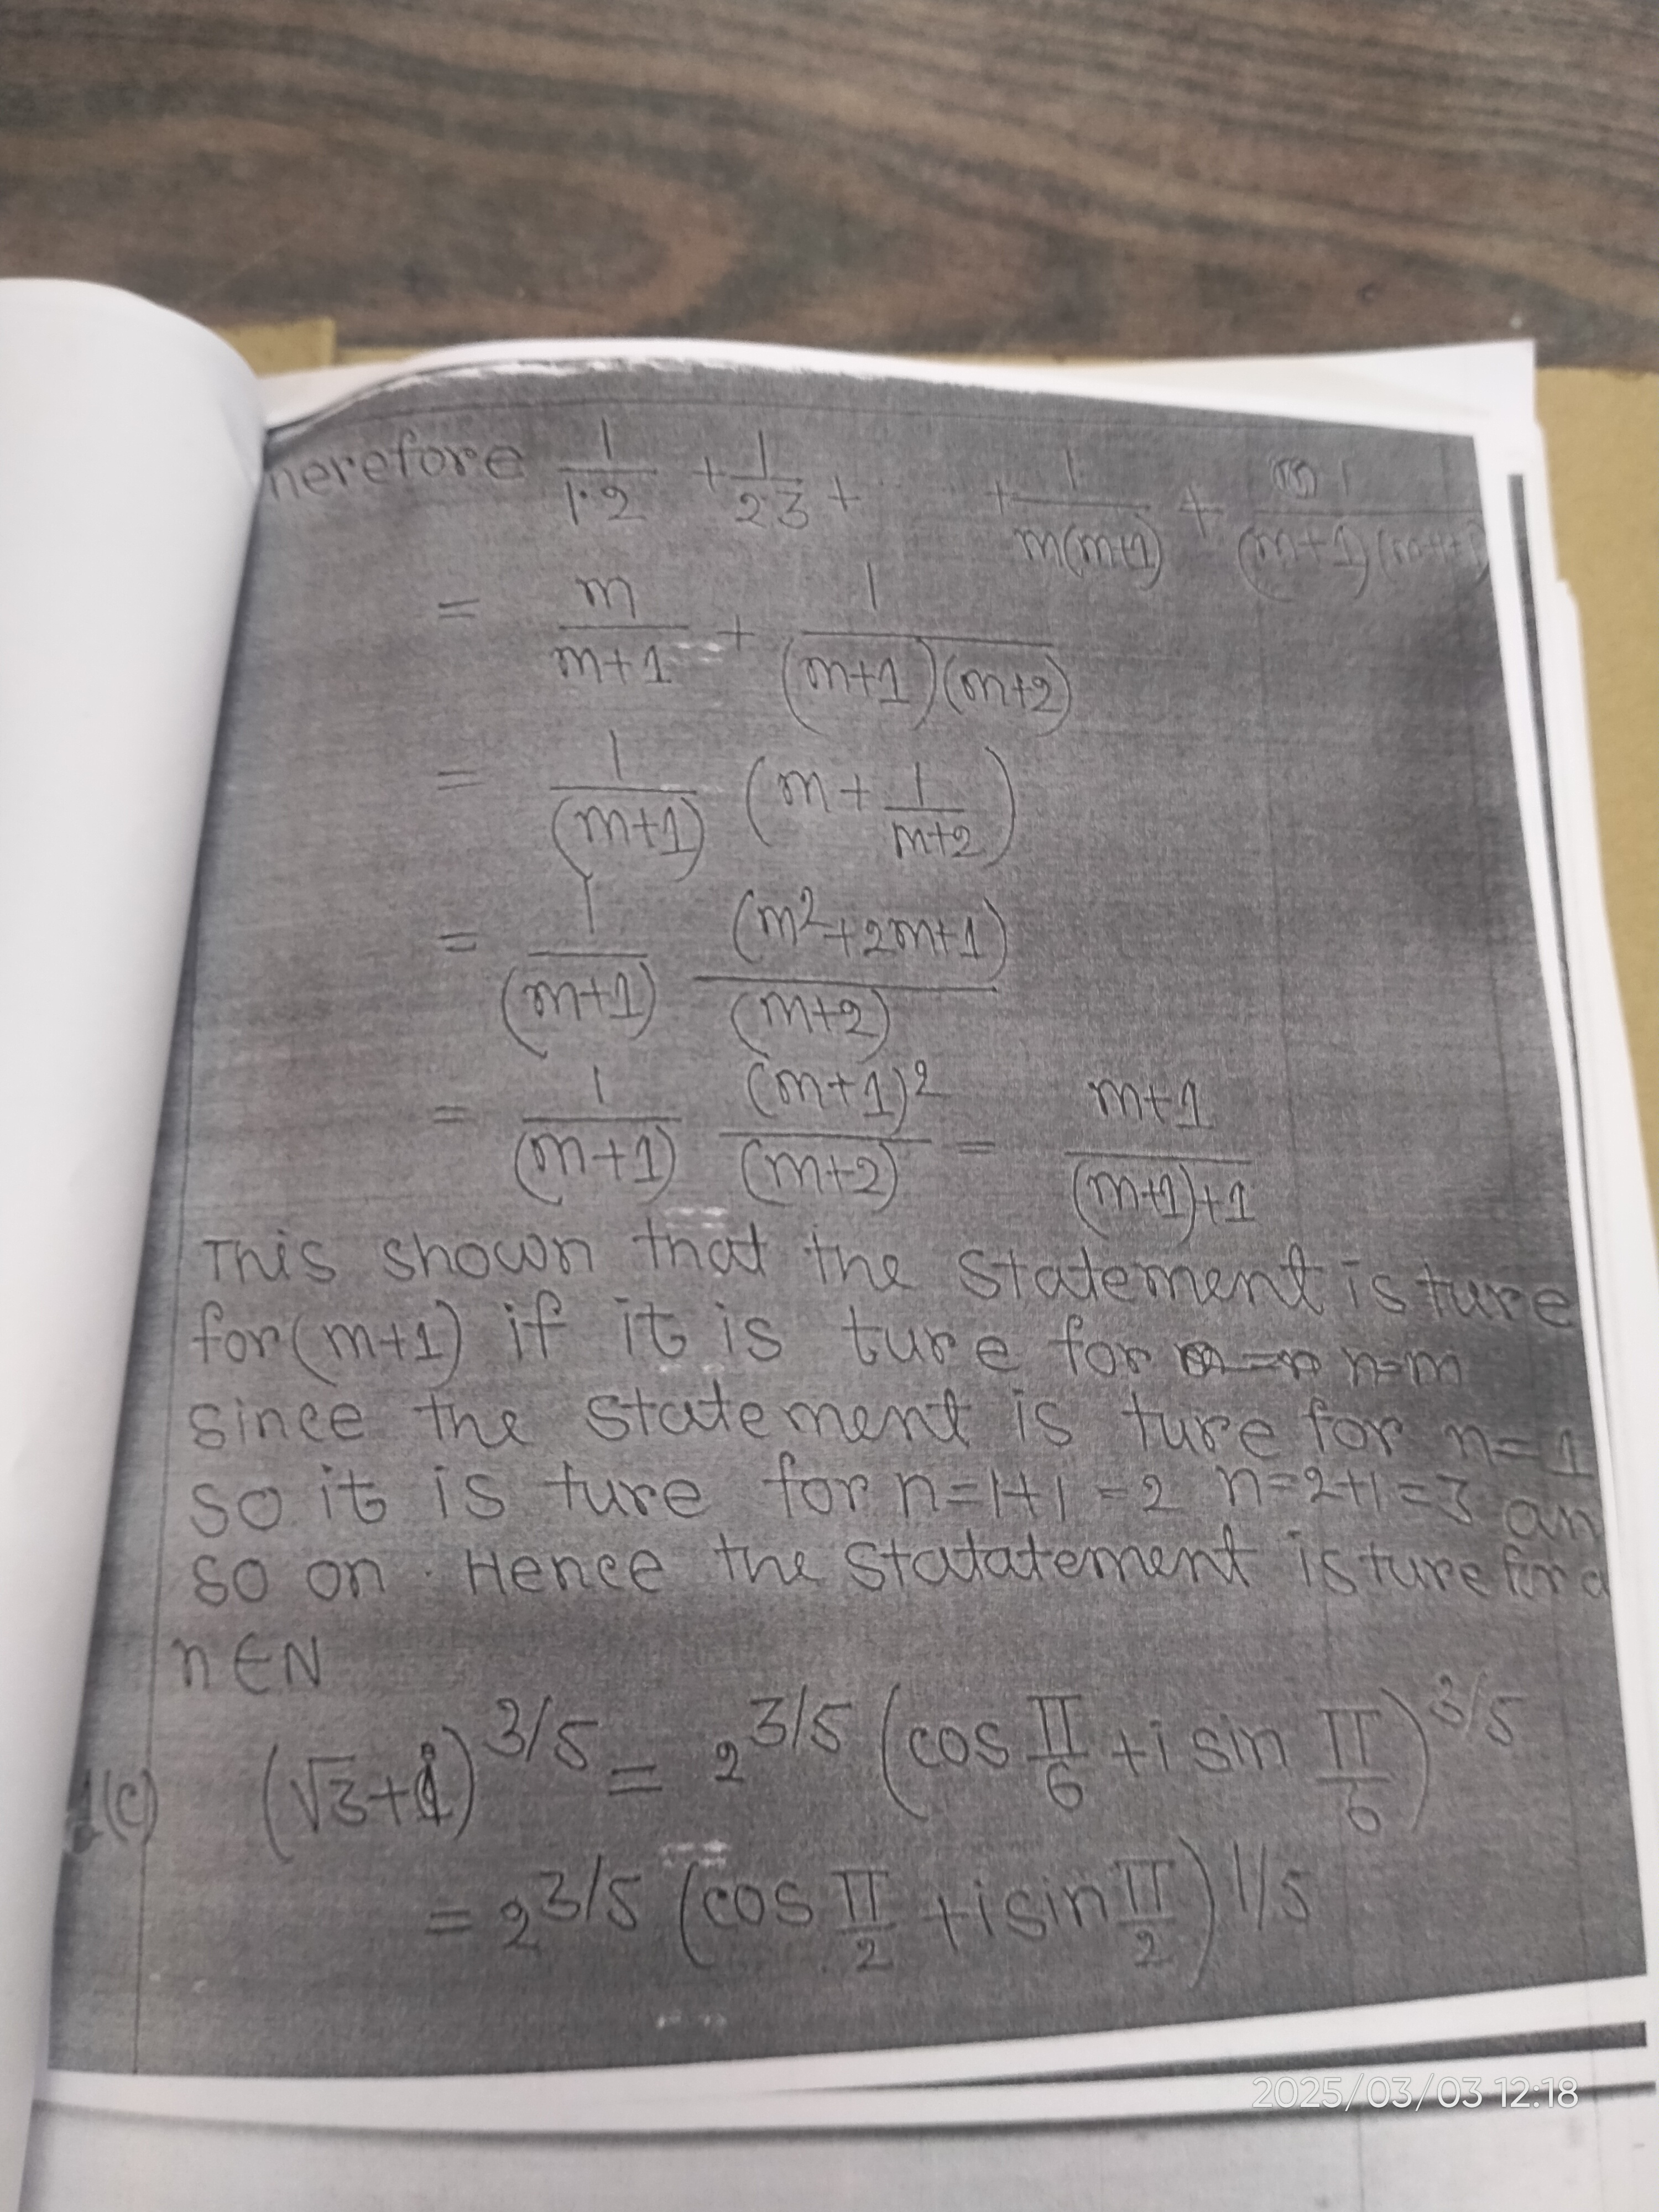 herefore 1/1·2 + 1/2·3 + ..... + 1/m(m+1) + 1/(m+1)(m+1+1)
= m/m+1 + 1/(m+1)(m+2)
= 1/(m+1) (m + 1/m+2)
= 1/(m+1) (m²+2m+1)/(m+2)
= 1/(m+1) (m+1)²/(m+2) = m+1/(m+1)+1
This shown that the statement is ture
for (m+1) if it is ture for n=m
since the statement is ture for n=1
so it is ture for n=1+1=2 n=2+1=3 an
so on. Hence the statatement is ture for a
n∈N
(c) (√3+i)^3/5 = 2^3/5 (cos π/6 + i sin π/6)^3/5
= 2^3/5 (cos π/2 + i sin π/2)^1/5
2025/03/03 12:18